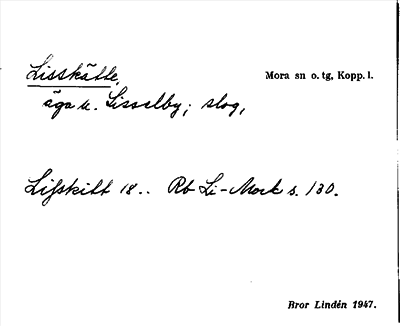 Lisskätte, Mora sn o. tg, Kopp. l.
äga u. Lisselby; slog,
Lifskitt 18.. Rb Li-Mork s. 130.
Bror Lindén 1947.